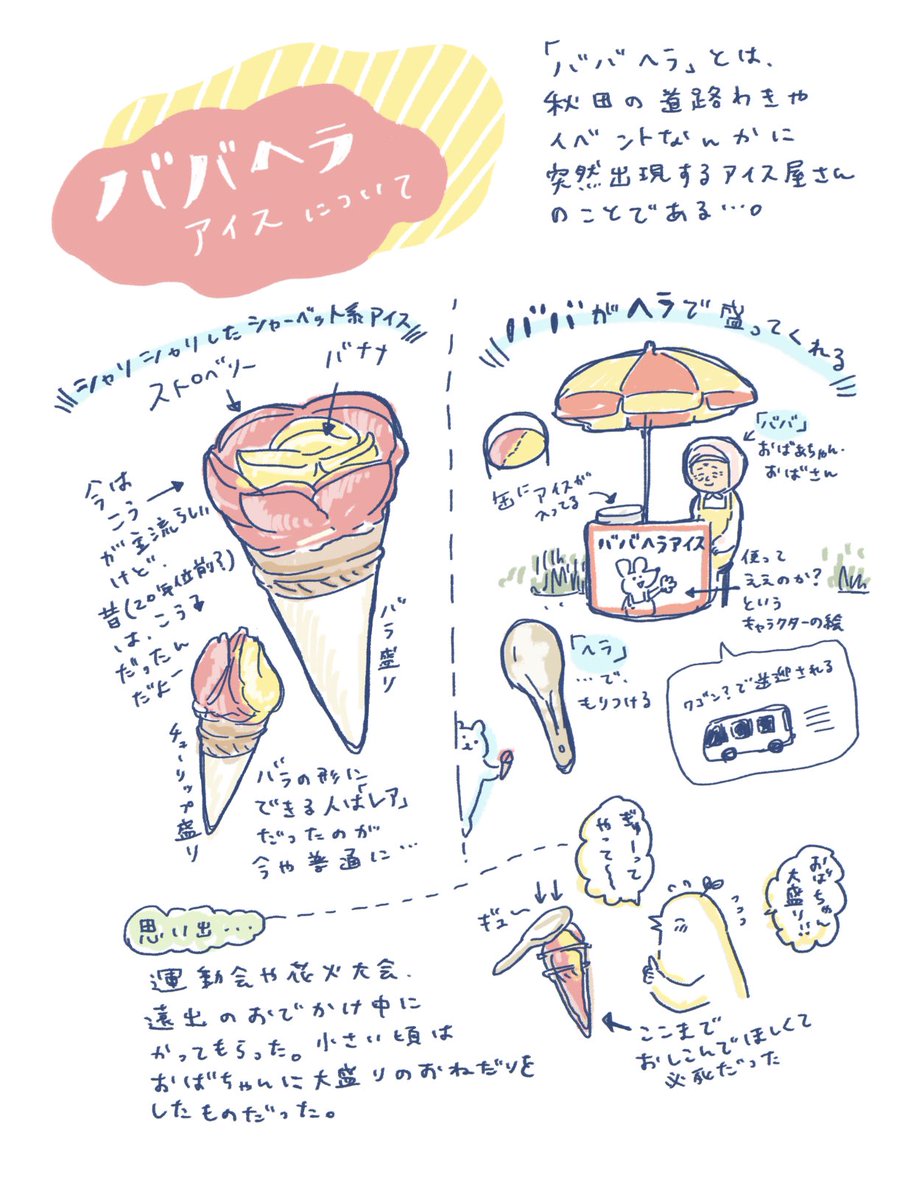 ババヘラ
アイスについて
「ババヘラ」とは、
秋田の道路わきや
イベントなんかに
突然出現するアイス屋さん
のことである…。
シャリシャリしたシャーベット系アイス
ストロベリー
バナナ
今は
こう
が主流らしい
けど、
昔(20年位前?)
は、こう
だったん
だよー
バラ盛り
チューリップ盛り
バラの形に
できる人は「レア」
だったのが
今や普通に…
ババがヘラで盛ってくれる
缶にアイスが
入ってる
「ババ」
おばあちゃん・
おばさん
ババヘラアイス
使って
ええのか?
という
キャラクターの絵
「ヘラ」
…で、
もりつける
ワゴン?で送迎される
思い出…
運動会や花火大会、
遠出のおでかけ中に
かってもらった。小さい頃は
おばちゃんに大盛りのおねだりを
したものだった。
ぎゅーって
やって〜
おばちゃん
大盛り!!
ギュー
ここまで
おしこんでほしくて
必死だった